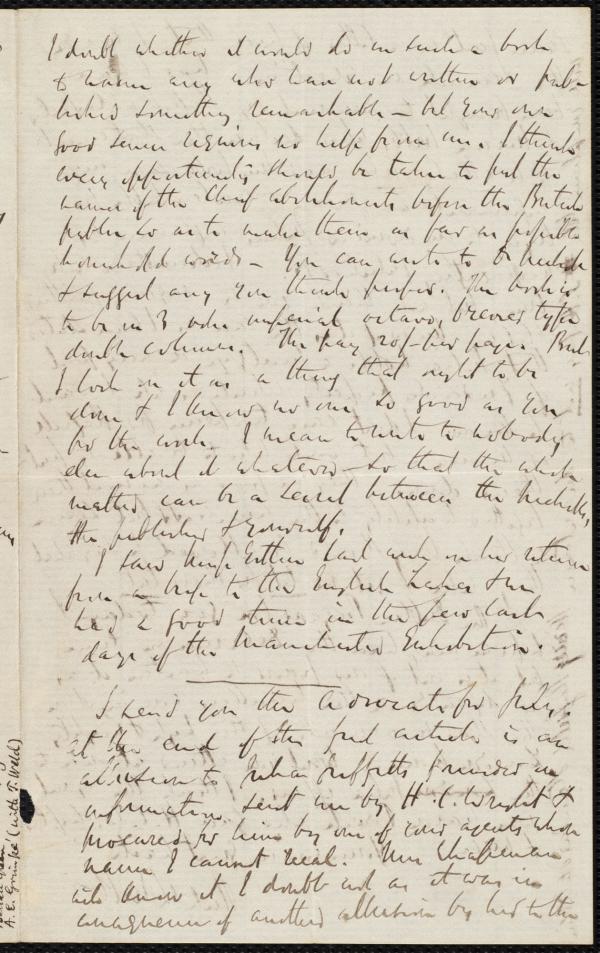 I doubt whether it would do in such a book
to name any who have not written or pub-
lished something remarkable – but your own
good sense requires no help from me. I think
every opportunity should be taken to put the
names of the chief abolitionists before the British
public so as to make them as far as possible
household words – You can write to
& suggest any you think proper. The book is
to be in 3 vols imperial octavo, brevier type
double columns. They pay 20/- per page. But
I look on it as a thing that ought to be
done & I know no one so good as you
for the work. I mean to write to nobody
else about it whatever – so that the whole
matter can be a secret between the
the publisher & yourself.
I saw Miss Estlin last week on her return
from a trip to the English Lakes & we
had a good time in the few last
days of the Manchester Exhibition.
I send you the Advocate for July.
at the end of the first article is an
allusion to Julia Griffiths, founded on
information sent me by H. C. Wright &
procured for him by one of your agents whose
name I cannot recal. Mrs Chapman
will know it I doubt not as it was in
consequence of another allusion by her to the
A. E. Grimké (with T. Weld)